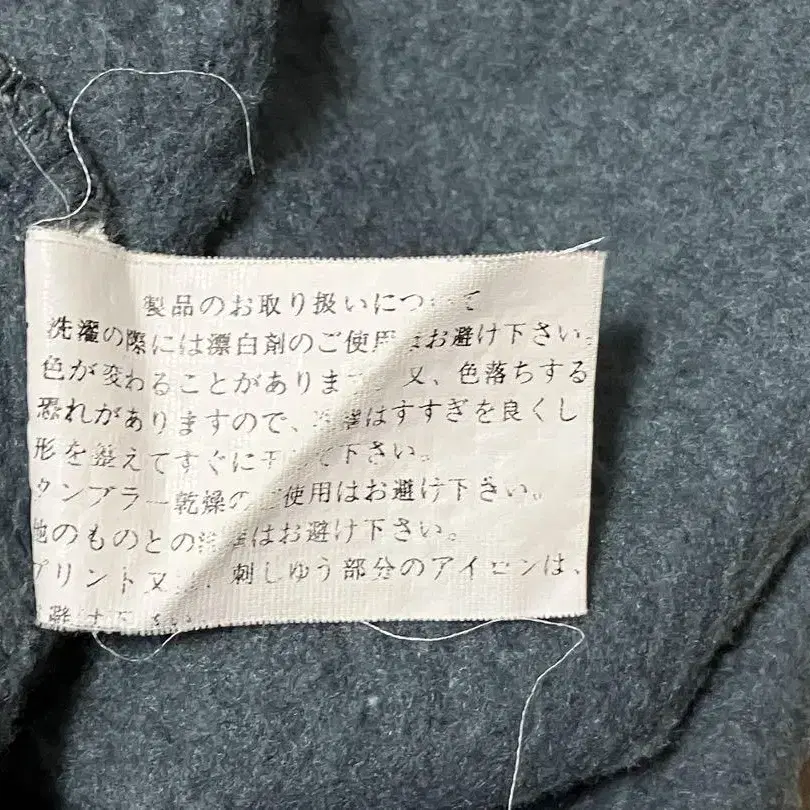 製品のお取り扱いについて
洗濯の際には漂白剤のご使用はお避け下さい。
色が変わることがあります 又、色落ちする
恐れがありますので、洗濯はすすぎを良くし
形を整えてすぐに干して下さい。
タンブラー乾燥のご使用はお避け下さい。
他のものとの はお避け下さい。
プリント又 、刺しゅう部分のアイロンは、
避け下さい